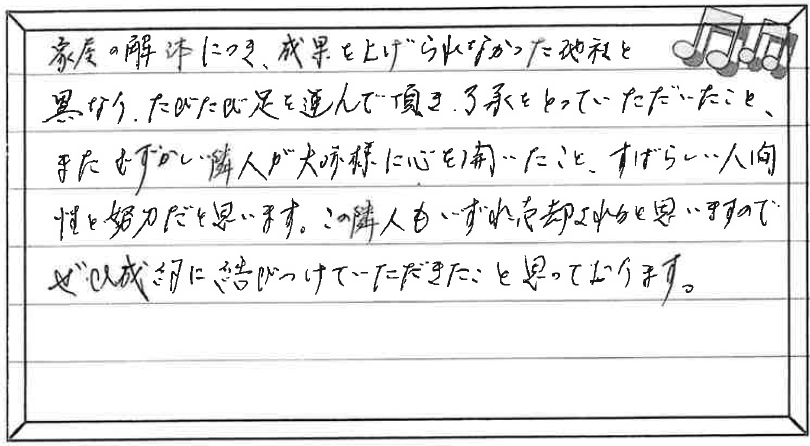 家屋の解体につき、成果を上げられなかった他社と
異なり、たびたび足を運んで頂き、了承をとっていただいたこと、
またむずかしい隣人が大崎様に心を開いたこと、すばらしい人間
性と努力だと思います。この隣人もいずれ売却されると思いますので
ぜひ成約に結びつけていただきたいと思っております。